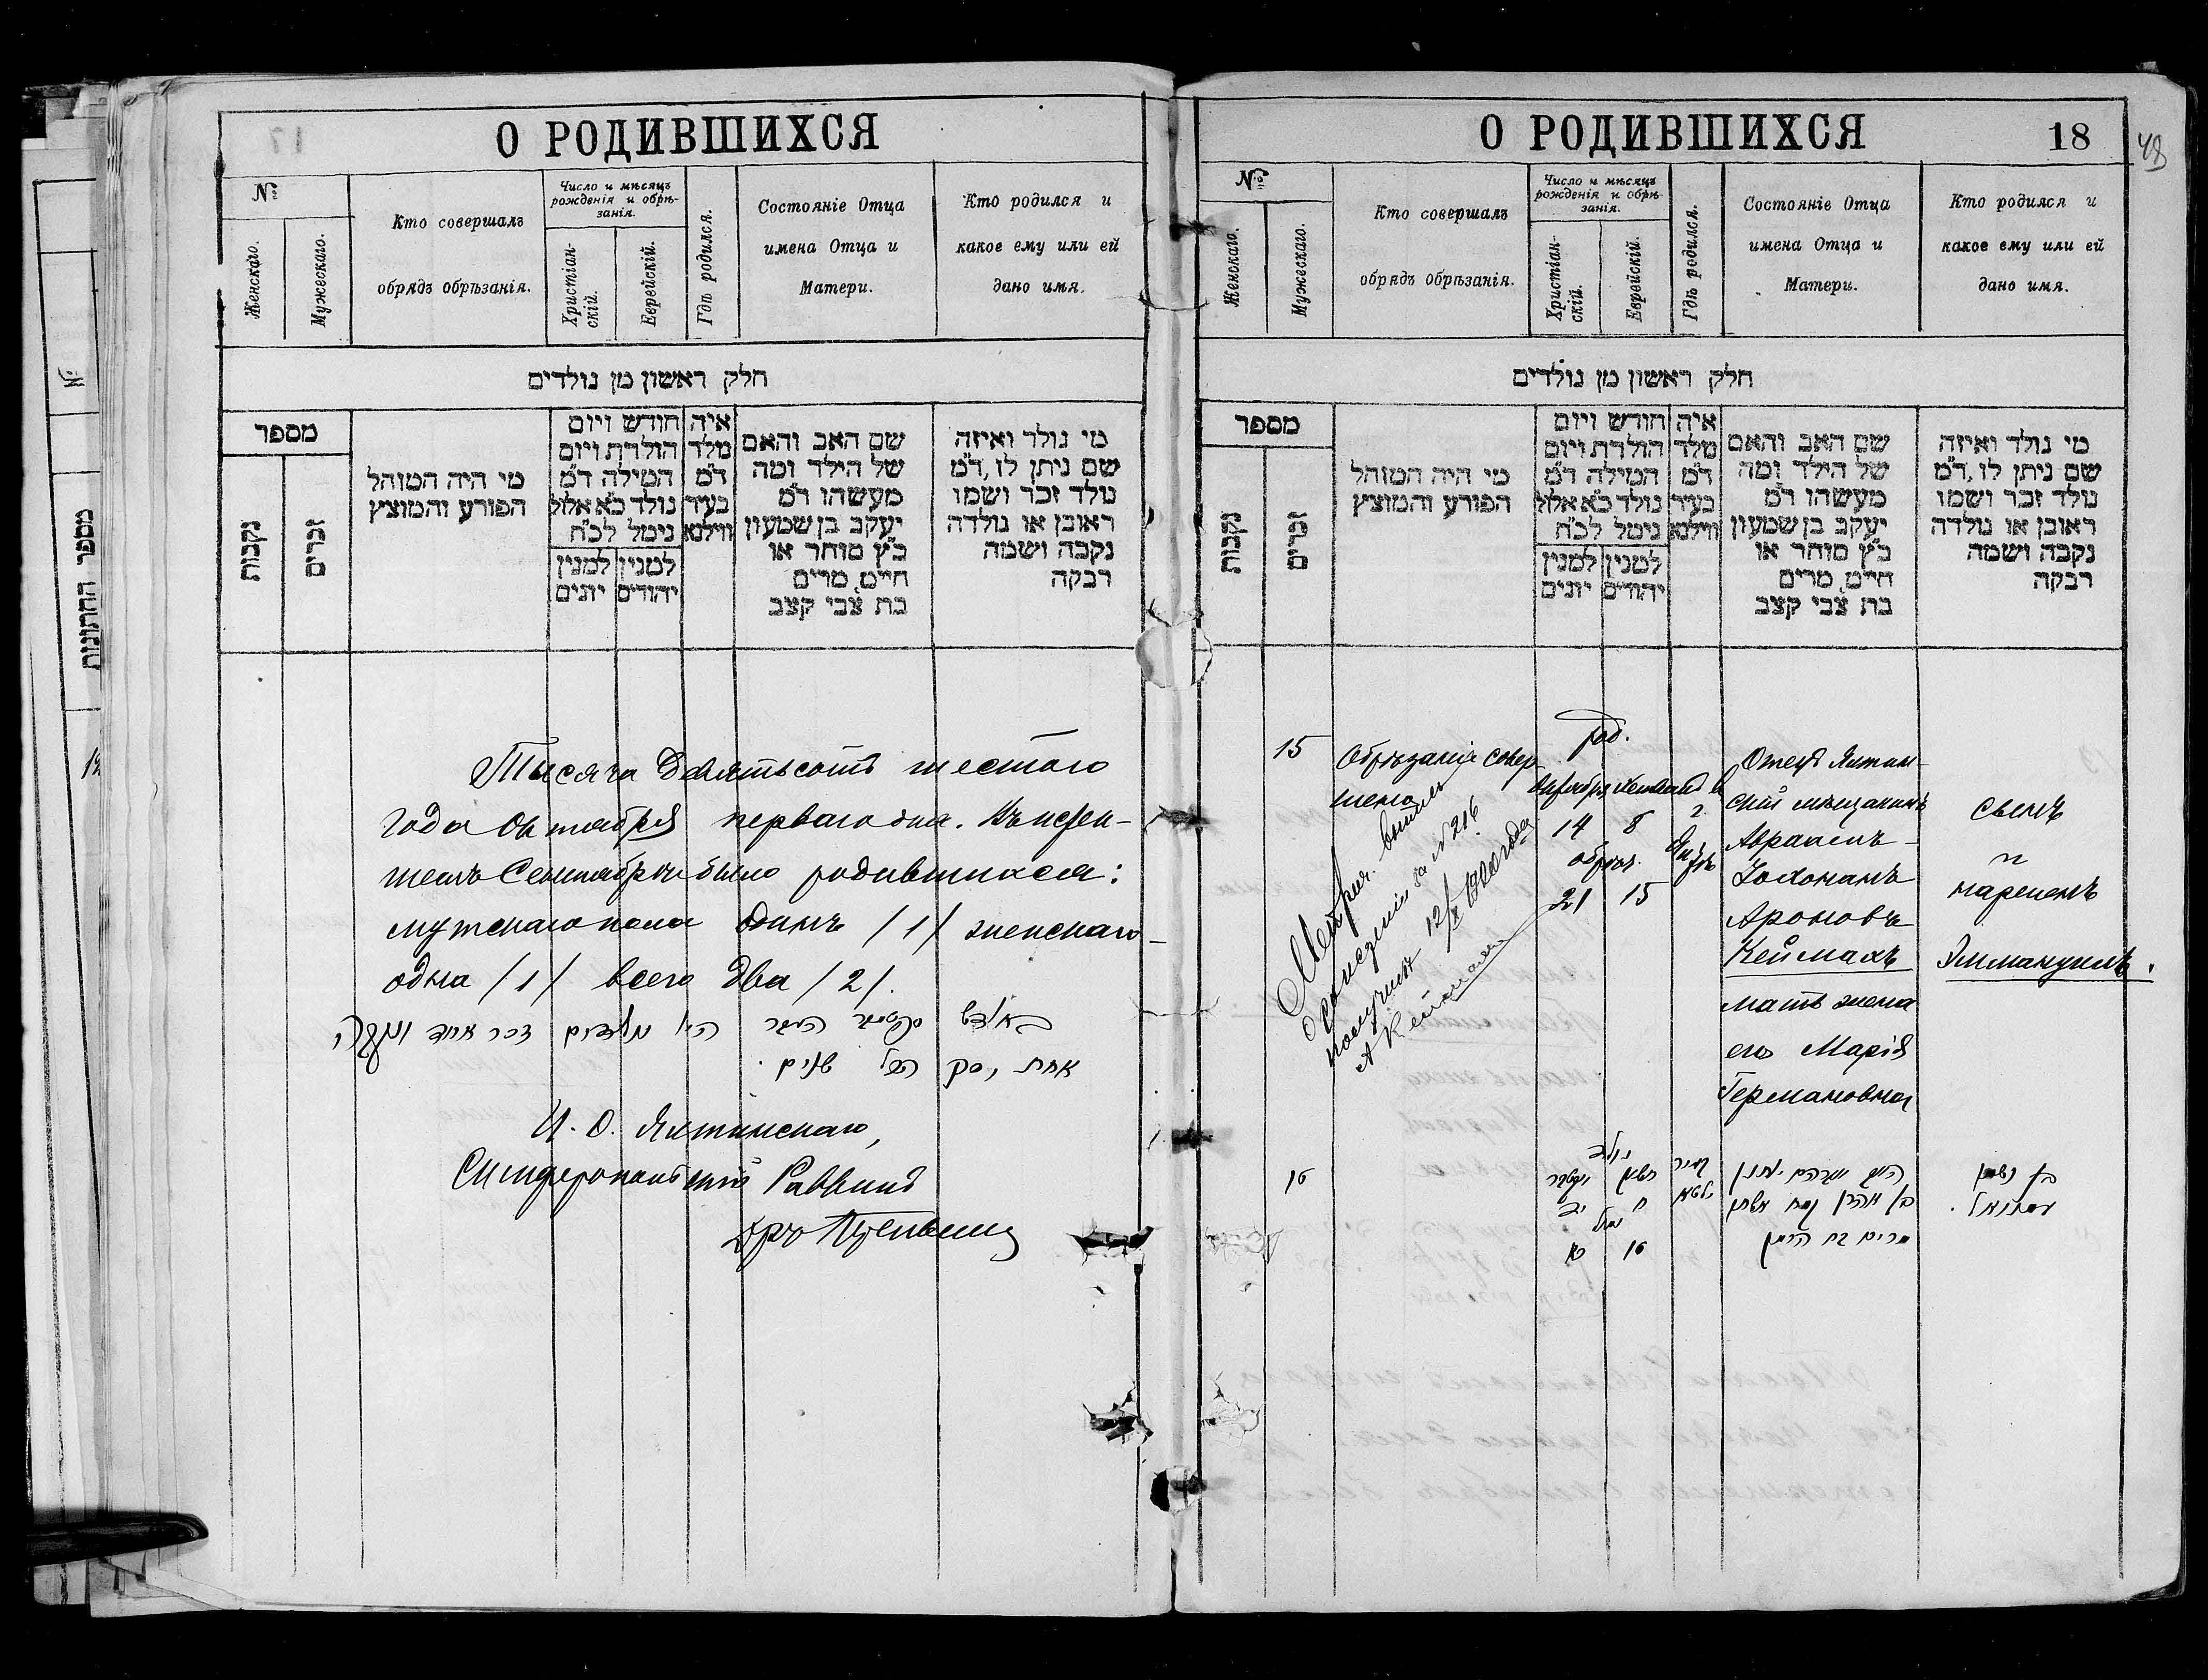 О РОДИВШИХСЯ
№
Женскаго.
Мужескаго.
Кто совершалъ
обрядъ обрѣзанія.
Число и мѣсяцъ
рожденія и обрѣ-
занія.
Христіан-
скій.
Еврейскій.
Гдѣ родился.
Состояніе Отца
имена Отца и
Матери.
Кто родился и
какое ему или ей
дано имя.
חלק ראשון מן נולדים
מספר
נקבות
זכרים
מי היה המוהל
הפורע והמוצץ
חודש ויום
הולדת ויום
המילה ד״מ
נולד כ״א אלול
נימל לכ״ח
למנין
יהודים
למנין
יונים
איה
מלד
ד״מ
בעיר
ווילנא
שם האב והאם
של הילד ומה
מעשהו ד״מ
יעקב בן שמעון
כ״ץ סוחר או
חייט, מרים
בת צבי קצב
מי נולד ואיזה
שם ניתן לו, ד״מ
נולד זכר ושמו
ראובן או נולדה
נקבה ושמה
רבקה
Тысяча девятьсотъ шестого
года октября перваго дня. Въ истек-
шемъ Сентябрѣ было родившихся:
мужскаго пола одинъ /1/ женскаго
одна /1/ всего два /2/.
היו נולדים זכר אחד
אחת הכל שנים.
И. О. Ялтинскаго,
Симферопольскій Раввинъ
О РОДИВШИХСЯ
18
48
№
Женскаго.
Мужескаго.
Кто совершалъ
обрядъ обрѣзанія.
Число и мѣсяцъ
рожденія и обрѣ-
занія.
Христіан-
скій.
Еврейскій.
Гдѣ родился.
Состояніе Отца
имена Отца и
Матери.
Кто родился и
какое ему или ей
дано имя.
חלק ראשון מן נולדים
מספר
נקבות
זכרים
מי היה המוהל
הפורע והמוצץ
חודש ויום
הולדת ויום
המילה ד״מ
נולד כ״א אלול
נימל לכ״ח
למנין
יהודים
למנין
יונים
איה
מלד
ד״מ
בעיר
ווילנא
שם האב והאם
של הילד ומה
מעשהו ד״מ
יעקב בן שמעון
כ״ץ סוחר או
חייט, מרים
בת צבי קצב
מי נולד ואיזה
שם ניתן לו, ד״מ
נולד זכר ושמו
ראובן או נולדה
נקבה ושמה
רבקה
15
Обрѣзаніе совер-
шено
Метрич. выпись
о рожденіи за № 216
получилъ 12/X 1920 года
А Кеймахъ
род.
Октября
14 8
обрѣз.
21 15
въ
г.
Отецъ Ялтин-
скій мѣщанинъ
Авраамъ-
Іохонанъ
Ароновъ
Кеймахъ
мать жена
его Марія
Германовна
сынъ
и
нареченъ
Эммануилъ.
בן אהרן
מרים בת
עמנואל.